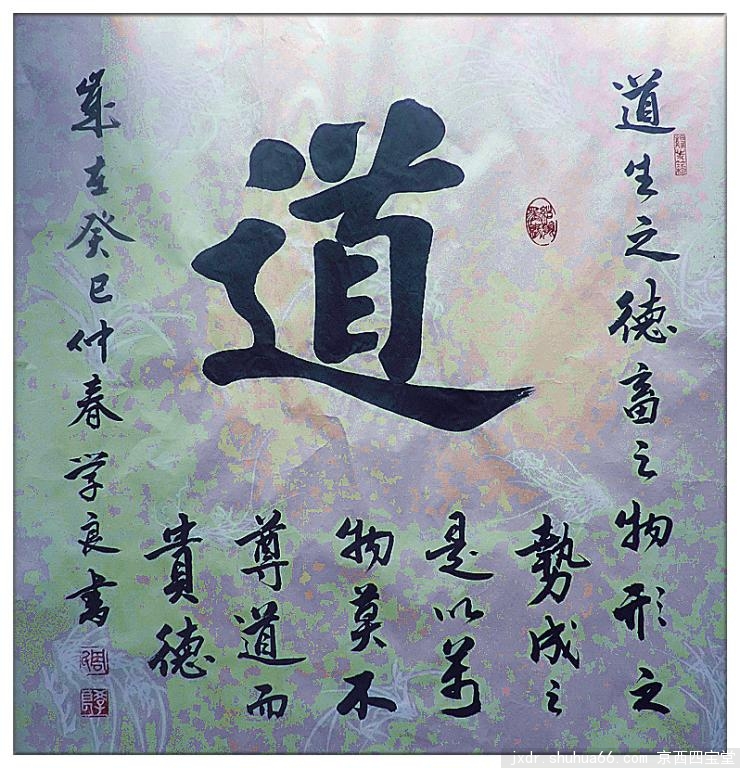 道
道生之德畜之物形之
勢成之
是以萬
物莫不
尊道而
貴德
歲在癸巳仲春学良书
jxdr.shuhua66.com 京西四宝堂